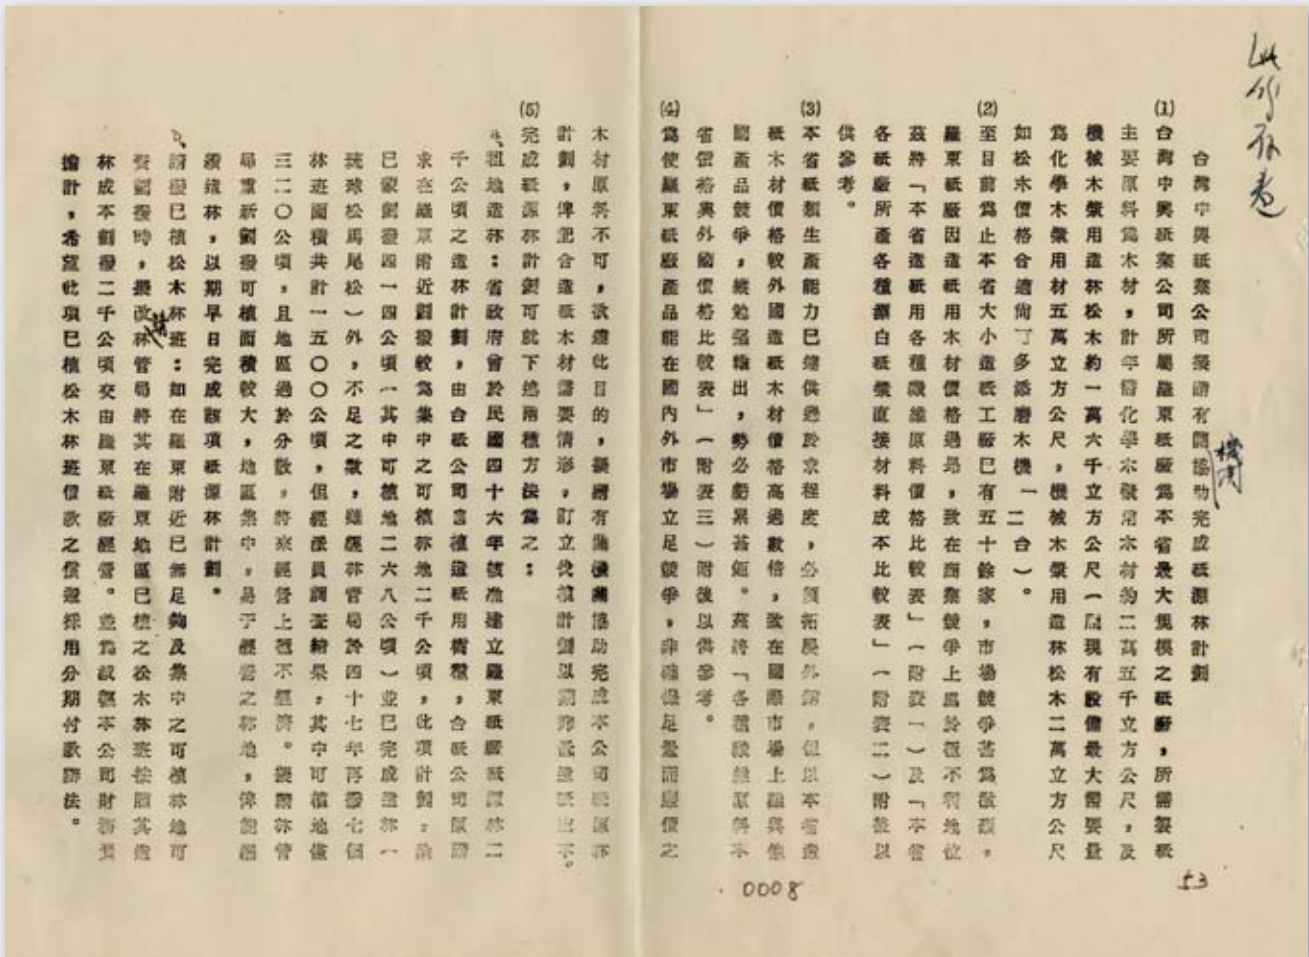 此份存卷
台灣中興紙業公司擬請有關機関協助完成紙源林計劃
(1)台灣中興紙業公司所屬羅東紙廠為本省最大規模之紙廠，所需製紙
主要原料為木材，計年需化學木漿用木材約二萬五千立方公尺，及
機械木漿用造林松木約一萬六千立方公尺（照現有設備最大需要量
為化學木漿用材五萬立方公尺，機械木漿用造林松木二萬立方公尺
如松木價格合適尚可多添磨木機一二台）。
(2)至目前為止本省大小造紙工廠已有五十餘家，市場競爭甚為激烈，
羅東紙廠因造紙用木材價格過昂，致在商業競爭上處於極不利地位
茲將「本省造紙用各種纖維原料價格比較表」（附表一）及「本省
各紙廠所產各種漂白紙漿直接材料成本比較表」（附表二）附後以
供參考。
(3)本省紙類生產能力已達供過於求程度，必須拓展外銷，但以本省造
紙木材價格較外國造紙木材價格高過數倍，致在國際市場上雖與他
國產品競爭，縱勉强輸出，勢必虧累甚鉅。茲將「各種纖維原料本
省價格與外國價格比較表」（附表三）附後以供參考。
(4)為使羅東紙廠產品能在國內外市場立足競爭，非確保足量而廉價之
木材原料不可，欲達此目的，擬請有關機關協助完成本公司紙源林
計劃，俾配合造紙木材需要情形，訂立伐植計劃以期
(5)完成紙源林計劃可就下述兩種方法為之：
a、租地造林：省政府曾於民國四十六年核准建立羅東紙廠紙源林二
千公頃之造林計劃，由台紙公司營植造紙用樹種，台紙公司原請
求在羅東附近劃撥較為集中之可植林地二千公頃，此項計劃，除
已蒙劃撥四一四公頃（其中可植地二六八公頃）並已完成造林（
琉球松馬尾松）外，不足之數，雖經林管局於四十七年再撥七個
林班面積共計一五〇〇公頃，但經派員調查結果，其中可植地僅
三二〇公頃，且地區過於分散，將來經營上極不經濟。擬請林管
局重新劃撥可植面積較大，地區集中，易于經營之林地，俾能繼
續造林，以期早日完成該項紙源林計劃。
b、請撥已植松木林班：如在羅東附近已無足夠及集中之可植林地可
資劃撥時，擬請林管局將其在羅東地區已植之松木林班按照其造
林成本劃撥二千公頃交由羅東紙廠經營。並為減輕本公司財務負
擔計，希望此項已植松木林班價款之償還採用分期付款辦法。
0008
53